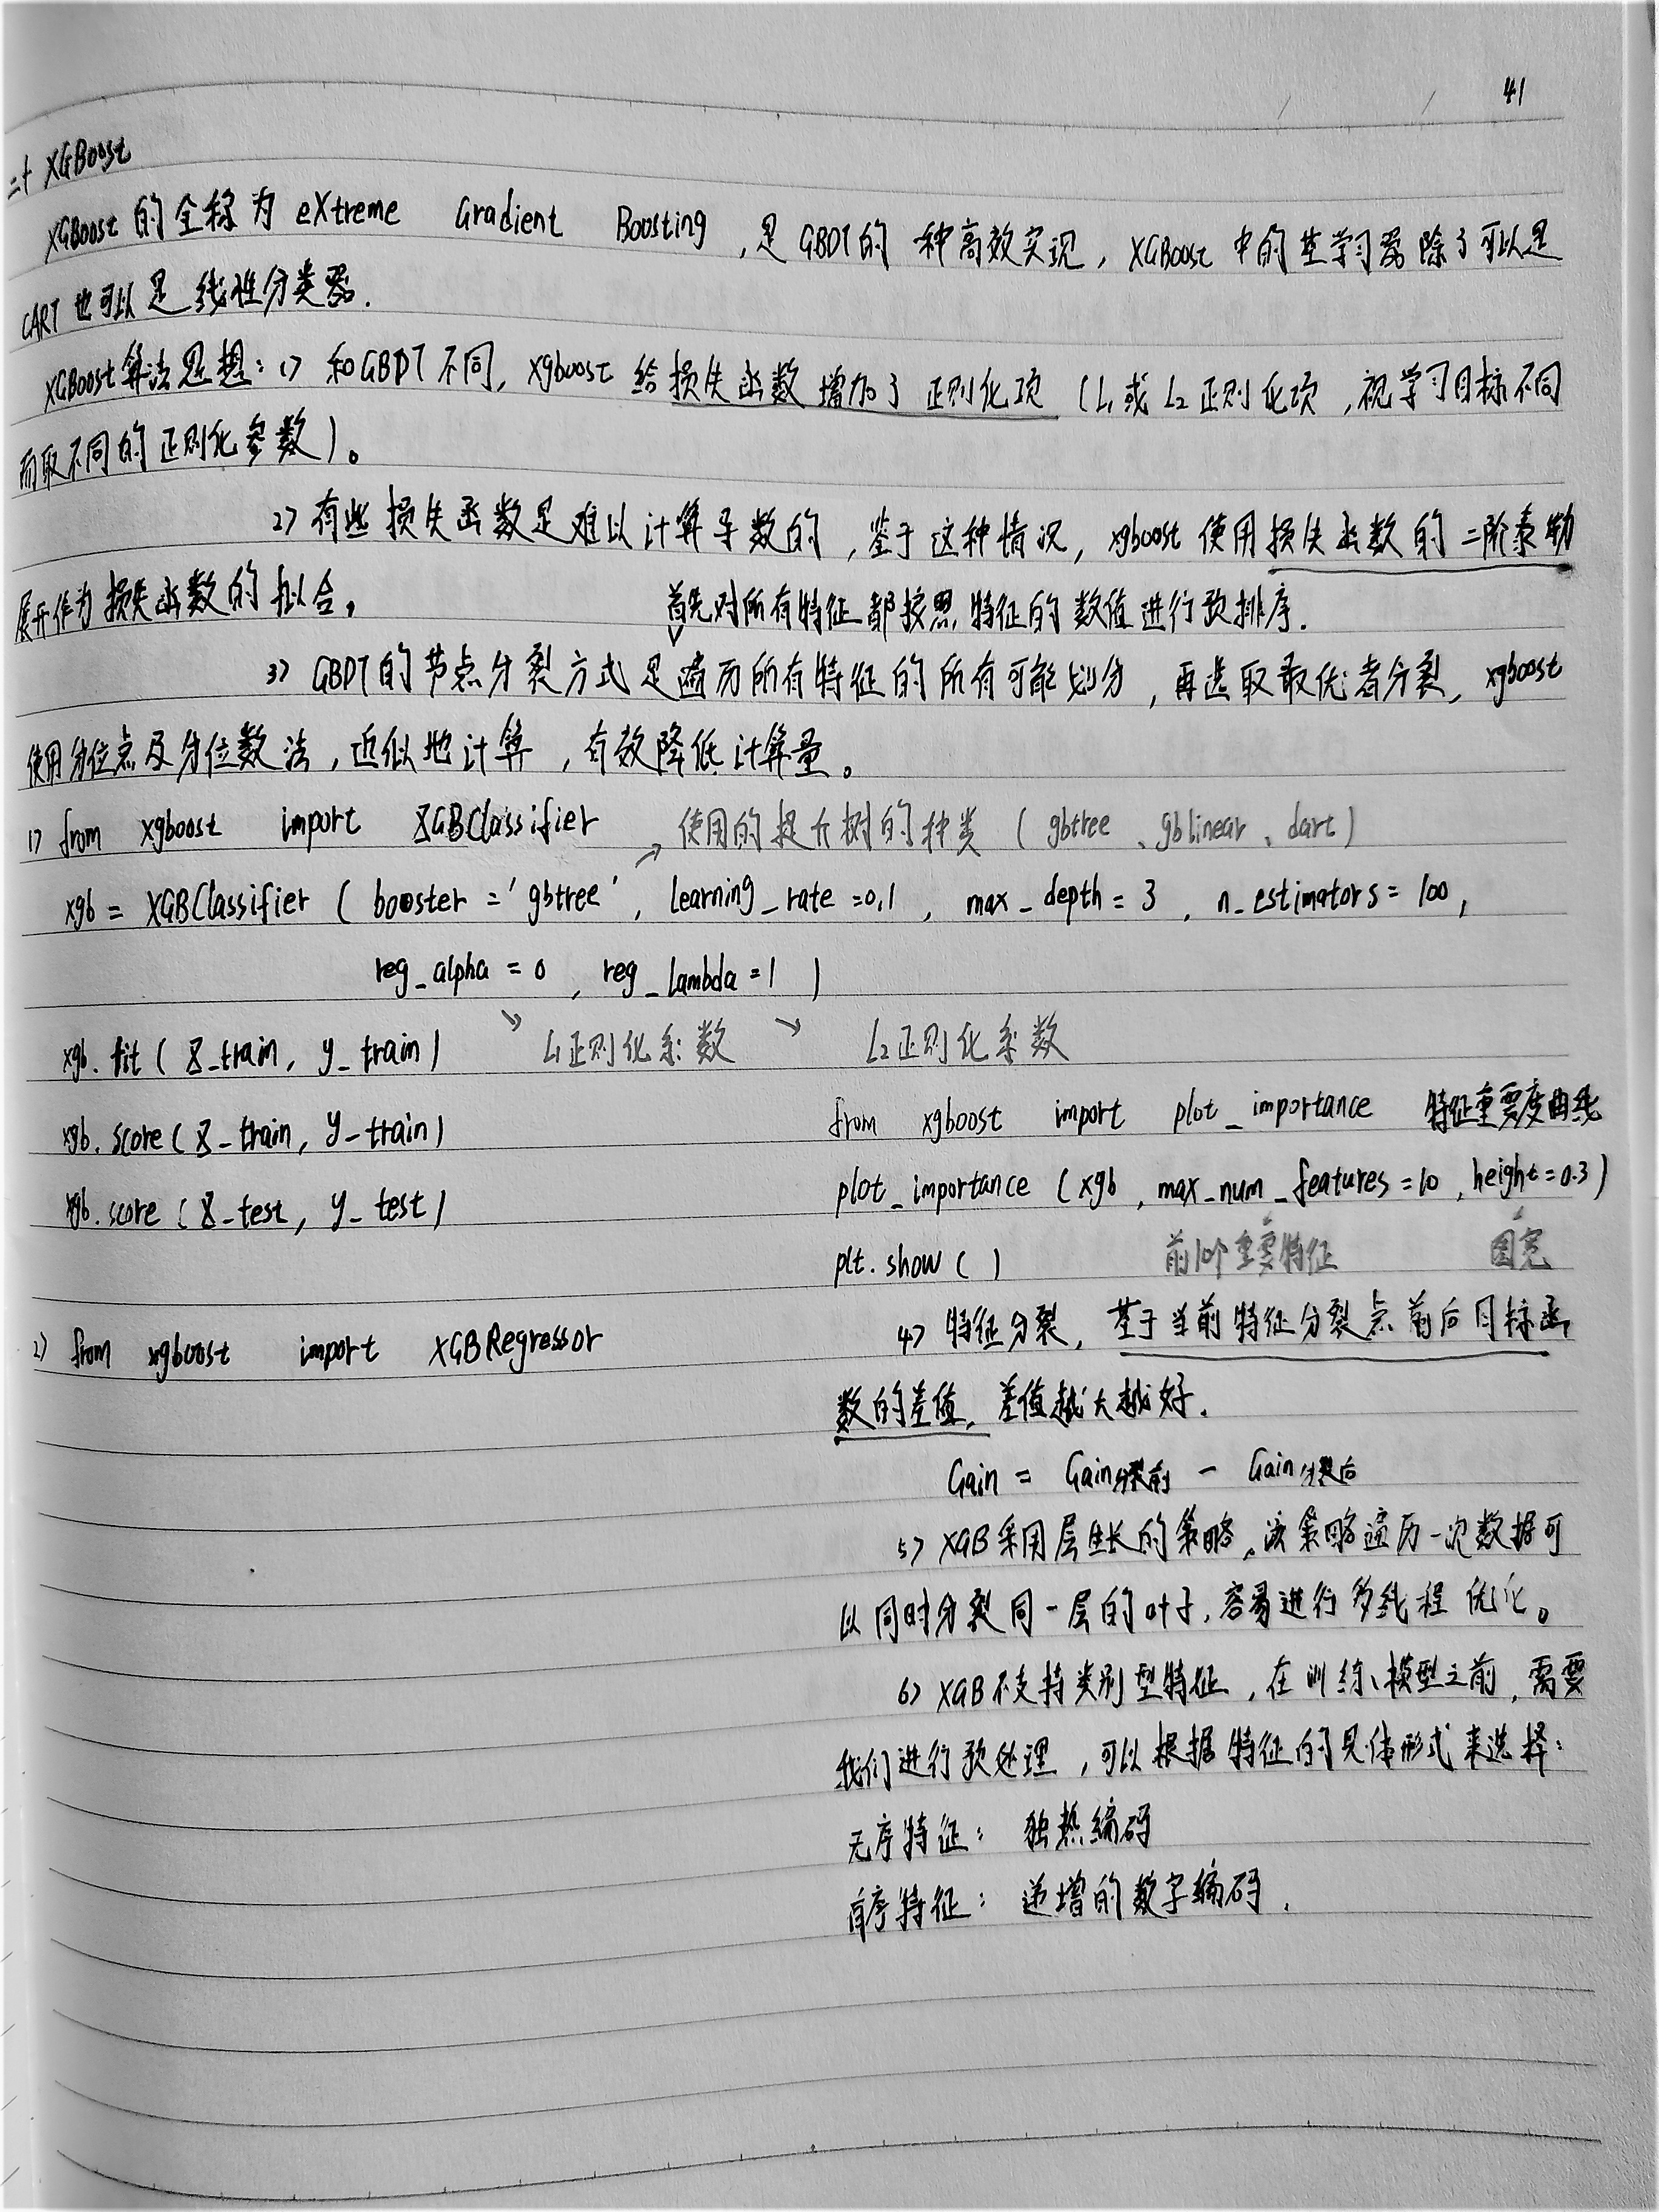 41
二十 XGBoost
XGBoost 的全称为 eXtreme Gradient Boosting ,是 GBDT的 一种高效实现, XGBoost 中的基学习器除了可以是
CART 也可以是线性分类器.
XGBoost算法思想: 1) 和GBDT不同, xgboost 给损失函数增加了正则化项 (L1或L2正则化项,视学习目标不同
而取不同的正则化参数)。
2) 有些损失函数是难以计算导数的,鉴于这种情况, xgboost 使用损失函数的二阶泰勒
展开作为损失函数的拟合,
首先对所有特征都按照特征的数值进行预排序.
3) GBDT的节点分裂方式是遍历所有特征的所有可能划分,再选取最优者分裂, xgboost
使用分位点及分位数法,近似地计算,有效降低计算量。
1) from xgboost import XGBClassifier
使用的提升树的种类 (gbtree、gblinear、dart)
xgb = XGBClassifier ( booster ='gbtree', learning_rate =0.1 , max_depth = 3 , n_estimators = 100 ,
reg_alpha = 0 , reg_lambda =1 )
xgb.fit ( X_train, y_train) L1正则化系数 L2正则化系数
xgb.score ( X_train, y_train)
xgb.score ( X_test, y_test)
from xgboost import plot_importance 特征重要度曲线
plot_importance (xgb , max_num_features =10 , height =0.3)
前10个重要特征 图宽
plt.show ( )
2) from xgboost import XGBRegressor
4) 特征分裂, 基于当前特征分裂点前后目标函
数的差值, 差值越大越好.
Gain = Gain分裂前 - Gain分裂后
5) XGB采用层生长的策略,该策略遍历一次数据可
以同时分裂同一层的叶子,容易进行多线程优化。
6) XGB不支持类别型特征,在训练模型之前,需要
我们进行预处理,可以根据特征的具体形式来选择:
无序特征: 独热编码
有序特征: 递增的数字编码.